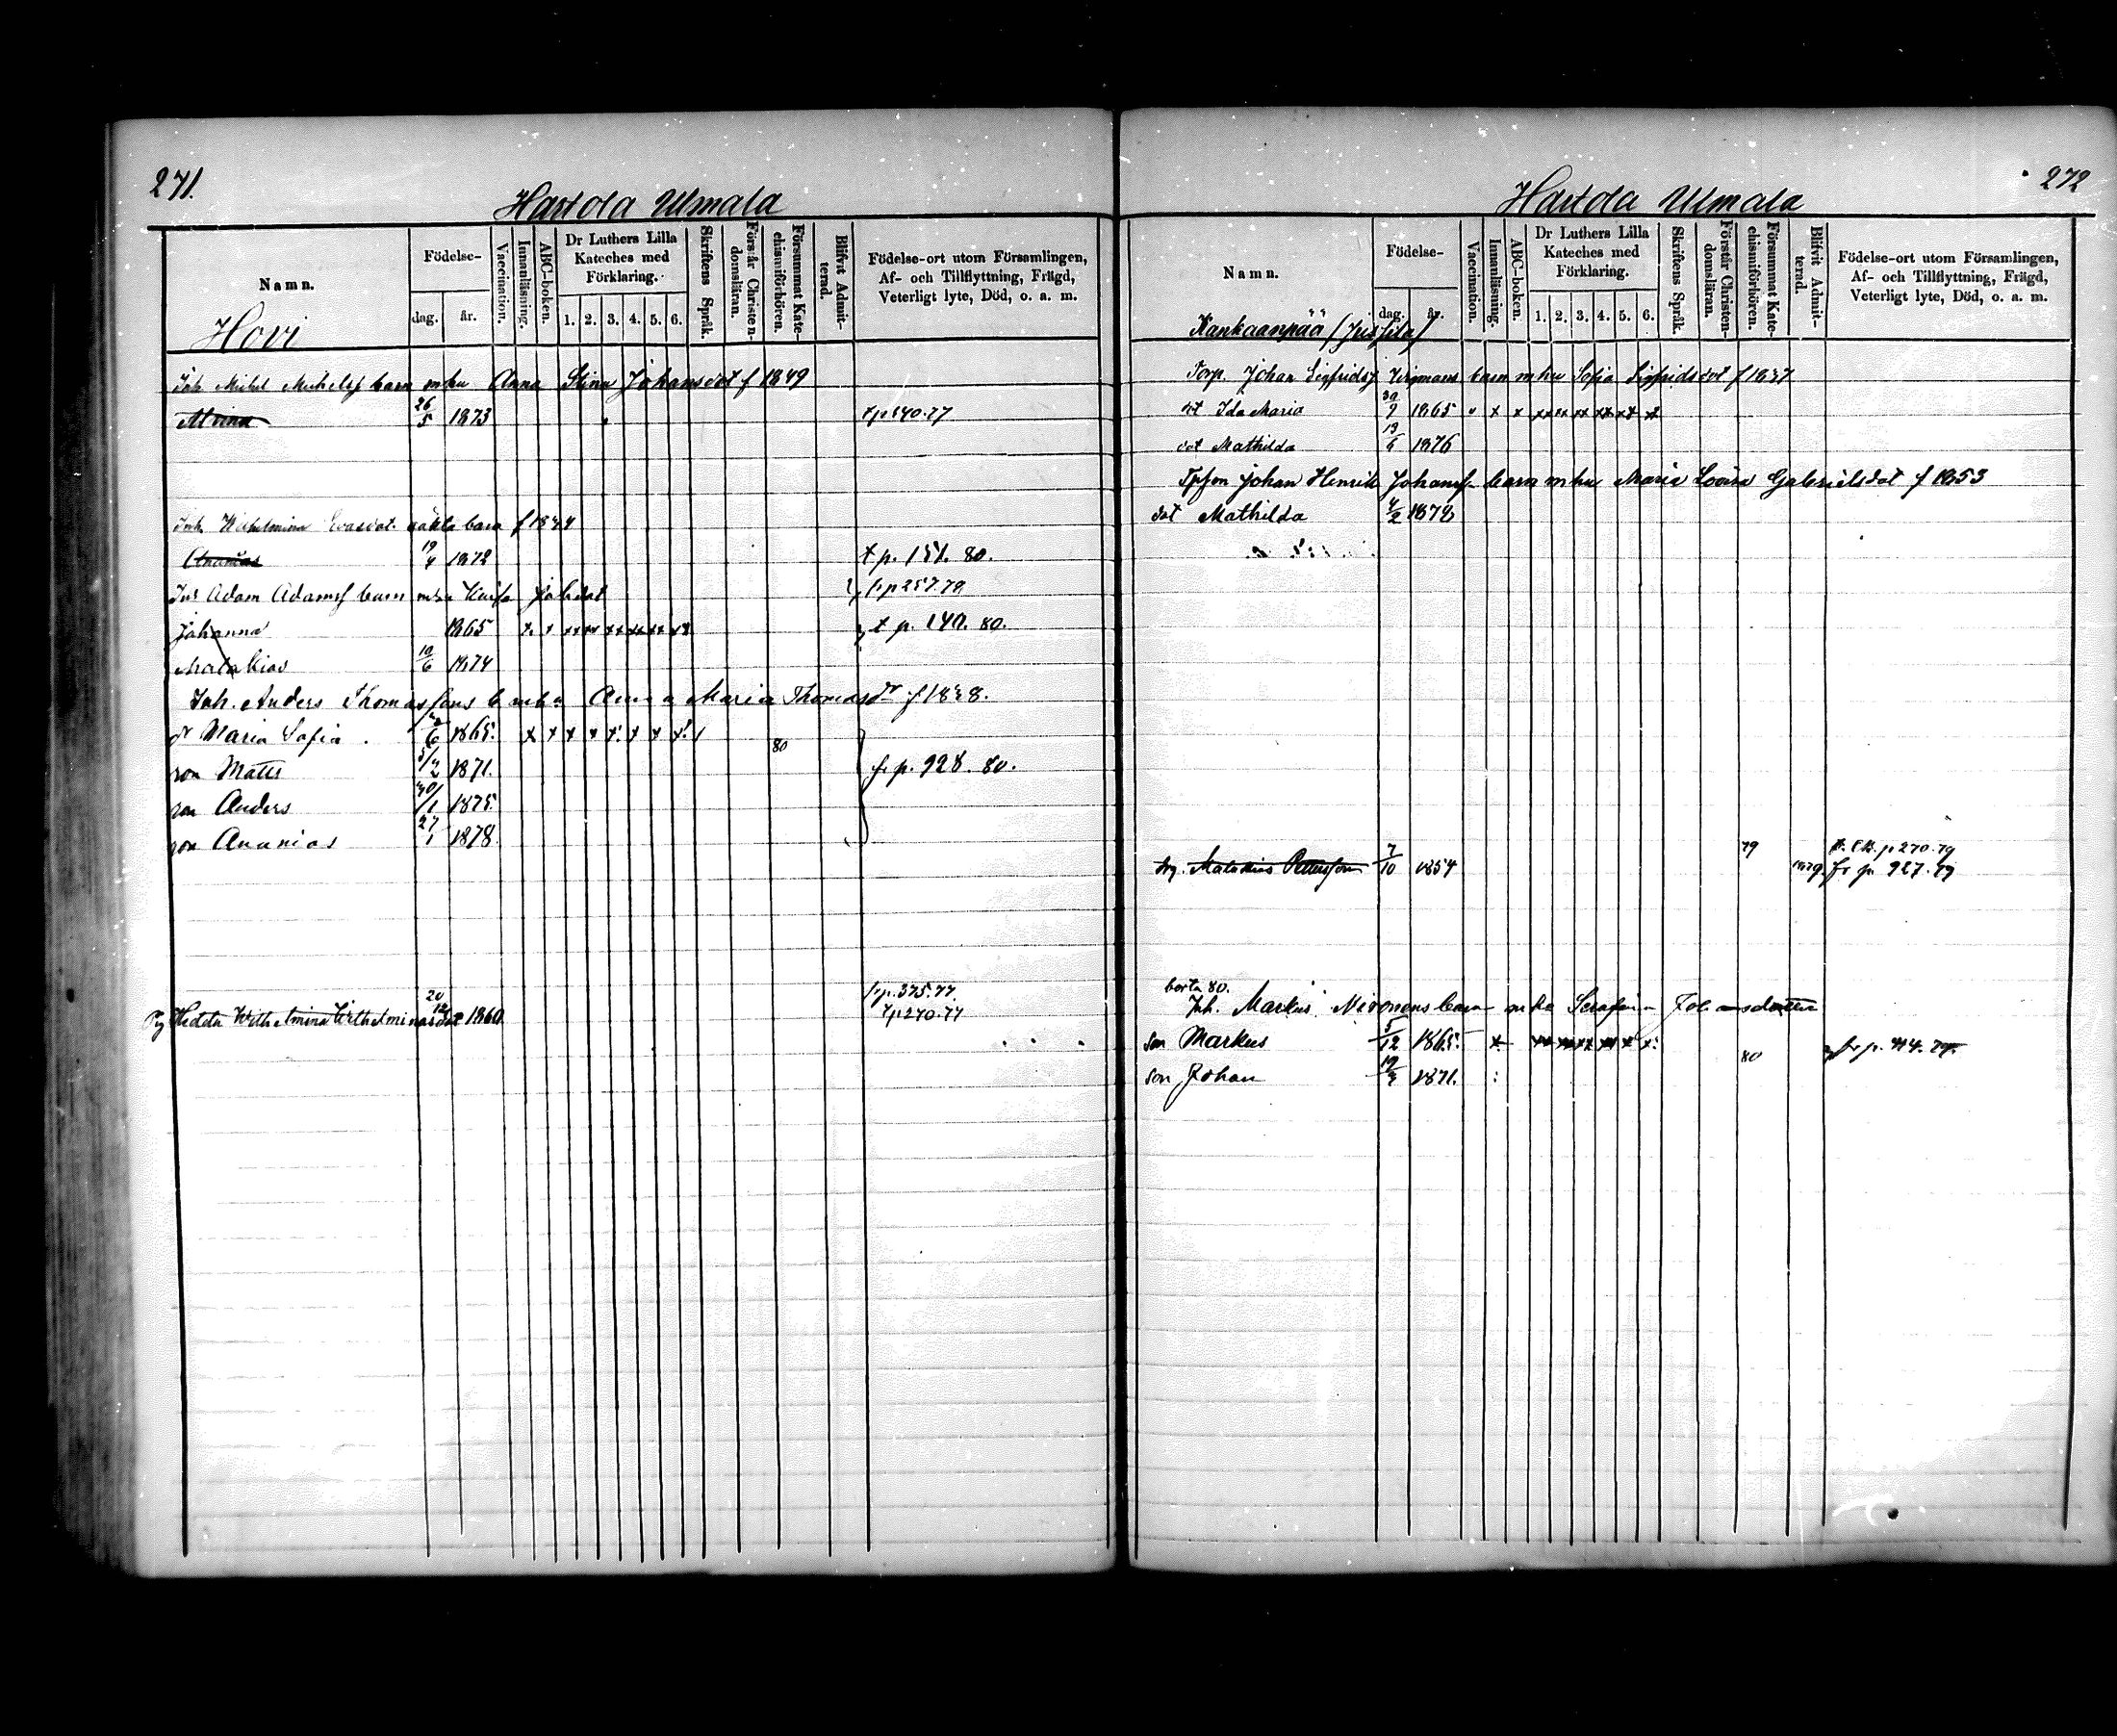 271.
Hartola Ulmala
Namn.
Födelse-
dag.
år.
Vaccination.
Innanläsning.
ABC-boken.
Dr Luthers Lilla
Kateches med
Förklaring.
1. 2. 3. 4. 5. 6.
Skriftens Språk.
Förstår Christen-
domsläran.
Försummat Kate-
chismiförhören.
Blifvit Admit-
terad.
Födelse-ort utom Församlingen,
Af- och Tillflyttning, Frägd,
Veterligt lyte, Död, o. a. m.
Hovi
Inh. Michel Michelsf barn m hu Anna Stina Johansdot f 1849
26/5 1873
Inh. Wilhelmina Evasdot oäkta barn
Ananias 19/4 1872 t p. 151. 80.
Inh Adam Adamsf barn m hu Kaisa Johsdot fr p 257.79
Johanna 1865 x. x xx xx xx xx xx xx t p. 140. 80.
Malakias 10/6 1874
Inh. Anders Thomassons b m hu Anna Maria Thomasdr f 1838.
dr Maria Sofia 1865. x x x x x x x x 80
son Matts 5/2 1871. fr p. 928. 80.
son Anders 30/1 1875.
son Ananias 27/1 1878.
fr p. 375. 77.
Pig Hedda Wilhelmina Wilhelminasdot 20/12 1860 t p 270. 77
272
Hartola Ulmala
Namn.
Födelse-
dag.
år.
Vaccination.
Innanläsning.
ABC-boken.
Dr Luthers Lilla
Kateches med
Förklaring.
1. 2. 3. 4. 5. 6.
Skriftens Språk.
Förstår Christen-
domsläran.
Försummat Kate-
chismiförhören.
Blifvit Admit-
terad.
Födelse-ort utom Församlingen,
Af- och Tillflyttning, Frägd,
Veterligt lyte, Död, o. a. m.
Kankaanpää (Jussila)
Torp. Johan Sigfridsf barn m hu Sofia Sigfridsdot f 1837
dt Ida Maria 1865 x x xx xx xx xx xx xx
dot Mathilda 1876
Tpson Johan Henrik Johansf barn m hu Maria Lovisa Gabrielsdot f 1853
dot Mathilda 4/2 1878
79 p 270.79
drg. Malakias Pettersson 7/10 1854 1879 fr p. 927. 79
borta 80.
Inh. Markus barn m hu Serafia Johansdotter
son Markus 5/12 1865. x xx xx xx xx x x
80
son Johan 1871.